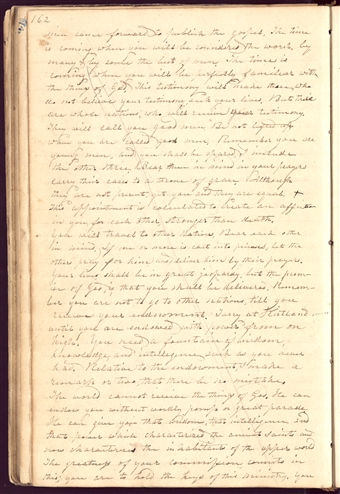 162
men came forward to publish the gospel. The time
is coming when you will be considered the worst by
many & by some the best of men. The time is
coming when you will be perfectly familiar with
the things of God. This testimony will make those who
do not believe your testimony seek your lives, But there
are whole nations, who will receive your testimony.
They will call you good men. Be not lifted up
when you are called good men. Remember you are
young men, and you shall be spared. I include
the other three. Bear them in mind in your prayers
carry their cases to a throne of grace. Although
they are not present, yet you and they are equal.
This appointment is calculated to create an affection
in you for each other, stronger than death.
You will travel to other Nations. Bear each other
in mind. If one or more is cast into prisons, let the
others pray for him and deliver him by their prayers.
Your lives shall be in great jeopardy, but the prom-
ise of God is that you shall be delivered. Remem-
ber you are not to go to other nations, till you
receive your endowment. Tarry at Kirtland
until you are endowed with power from on
high. You need a fountain of wisdom,
knowledge, and intelligence, such as you never
had. Relative to the endowment, I make a
remark or two, that there be no mistake.
The world cannot receive the things of God. He can
endow you without worldly pomp or great parade.
He can give you that wisdom, that intelligence and
that power which characterized the ancient saints and
now characterizes the inhabitants of the upper world
The greatness of your commission consists in
this; you are to hold the keys of this ministry, you